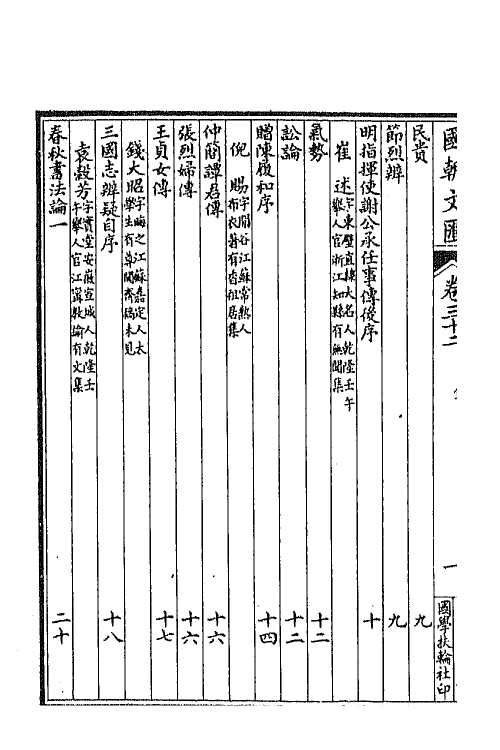 國朝文匯 卷三十二 一 國學扶輪社印
民貴 九
節烈辨 九
明指揮使謝公承任事傳後序 十
崔 述 字東壁直隸大名人乾隆壬午
舉人官浙江知縣有無聞集
氣勢 十二
訟論 十二
贈陳履和序 十四
倪 賜 字閬谷江蘇常熟人
布衣著有香祖居集
仲簡譚君傳 十六
張烈婦傳 十六
王貞女傳 十七
錢大昭 字晦之江蘇嘉定人太
學生有尊聞齋稿未見
三國志辨疑自序 十八
袁穀芳 字實堂安徽宣城人乾隆壬
午舉人官江寧教諭有文集
春秋書法論一 二十